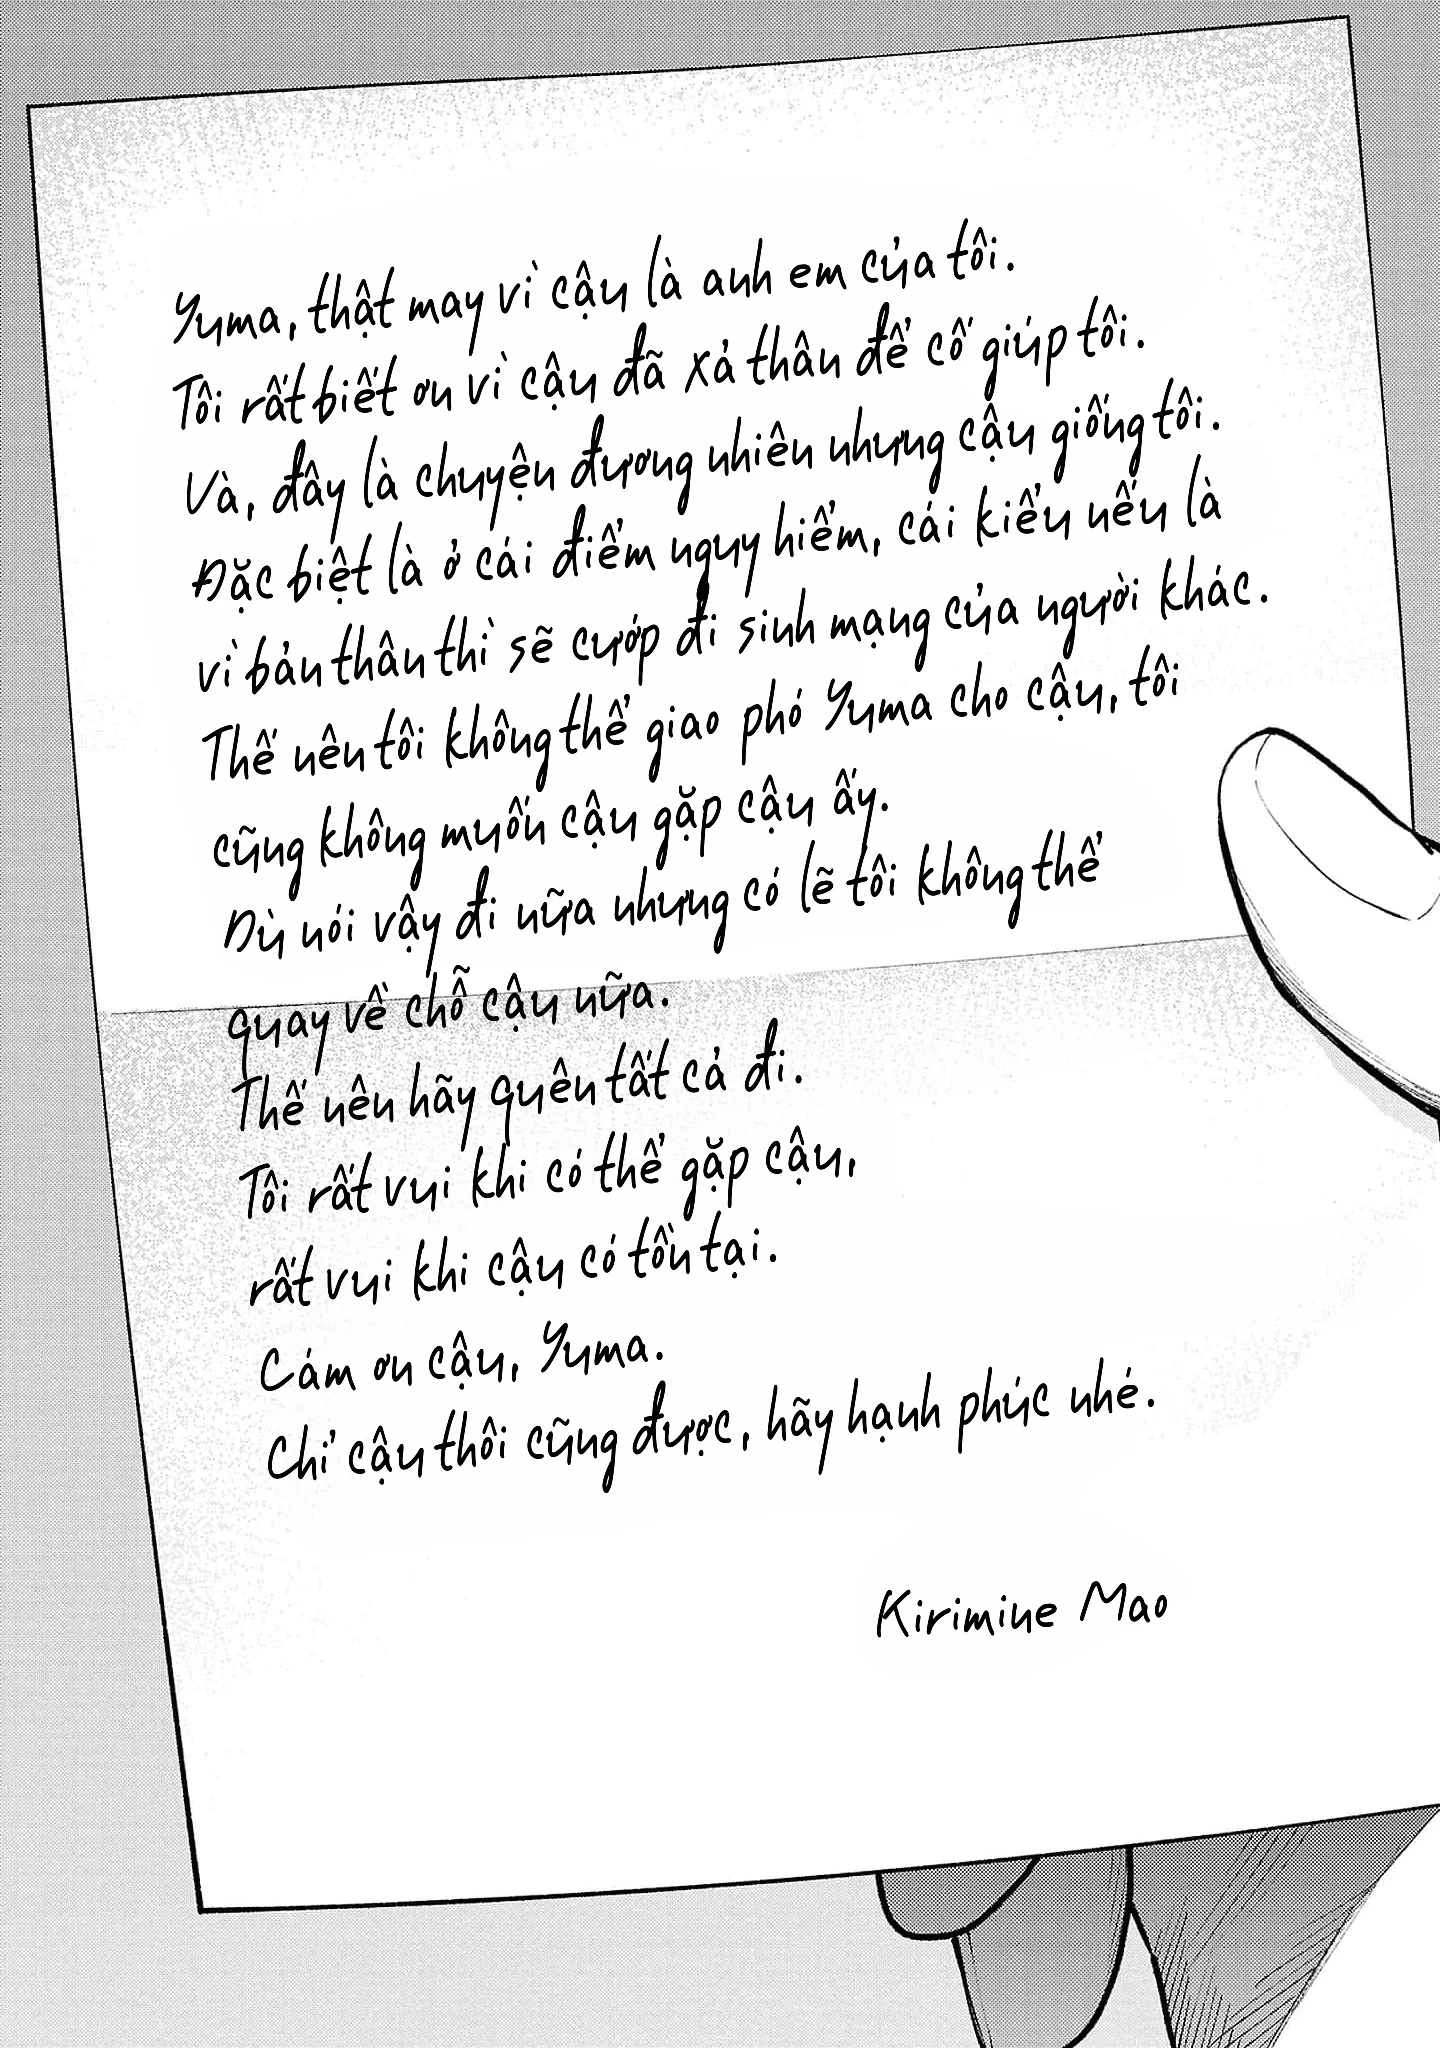 Yuma, thật may vì cậu là anh em của tôi.
Tôi rất biết ơn vì cậu đã xả thân để cố giúp tôi.
Và, đây là chuyện đương nhiên nhưng cậu giống tôi.
Đặc biệt là ở cái điểm nguy hiểm, cái kiểu nếu là
vì bản thân thì sẽ cướp đi sinh mạng của người khác.
Thế nên tôi không thể giao phó Yuma cho cậu, tôi
cũng không muốn cậu gặp cậu ấy.
Dù nói vậy đi nữa nhưng có lẽ tôi không thể
quay về chỗ cậu nữa.
Thế nên hãy quên tất cả đi.
Tôi rất vui khi có thể gặp cậu,
rất vui khi cậu có tồn tại.
Cám ơn cậu, Yuma.
Chỉ cậu thôi cũng được, hãy hạnh phúc nhé.
Kirimine Mao